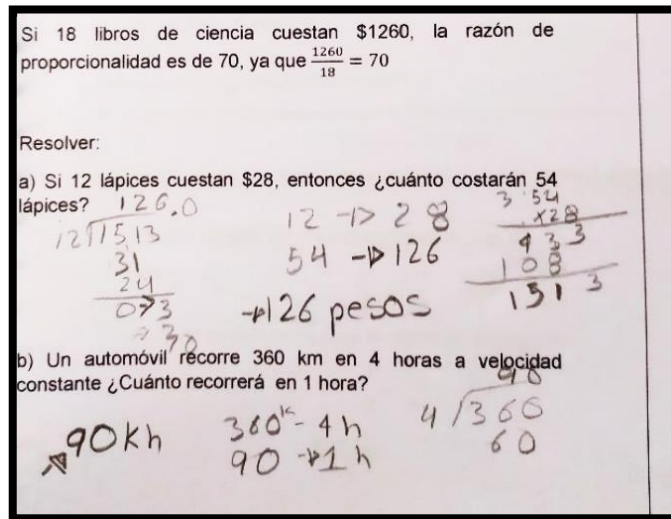 Si 18 libros de ciencia cuestan $1260, la razón de
proporcionalidad es de 70, ya que 1260/18 = 70
Resolver:
a) Si 12 lápices cuestan $28, entonces ¿cuánto costarán 54
lápices?
126.0
12 1513
31
24
073
30
12 -> 28
54 -> 126
-> 126 pesos
3 54
x28
433
108
1513
b) Un automóvil recorre 360 km en 4 horas a velocidad
constante ¿Cuánto recorrerá en 1 hora?
90kh
360k - 4h
90 -> 1h
90
4 360
60